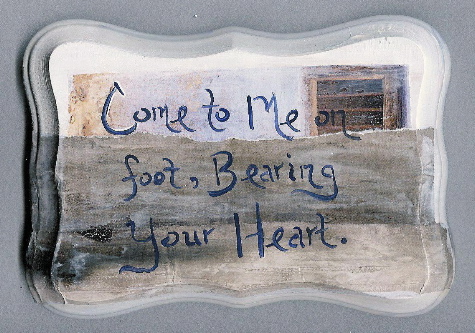 Come to Me on
foot, Bearing
Your Heart.